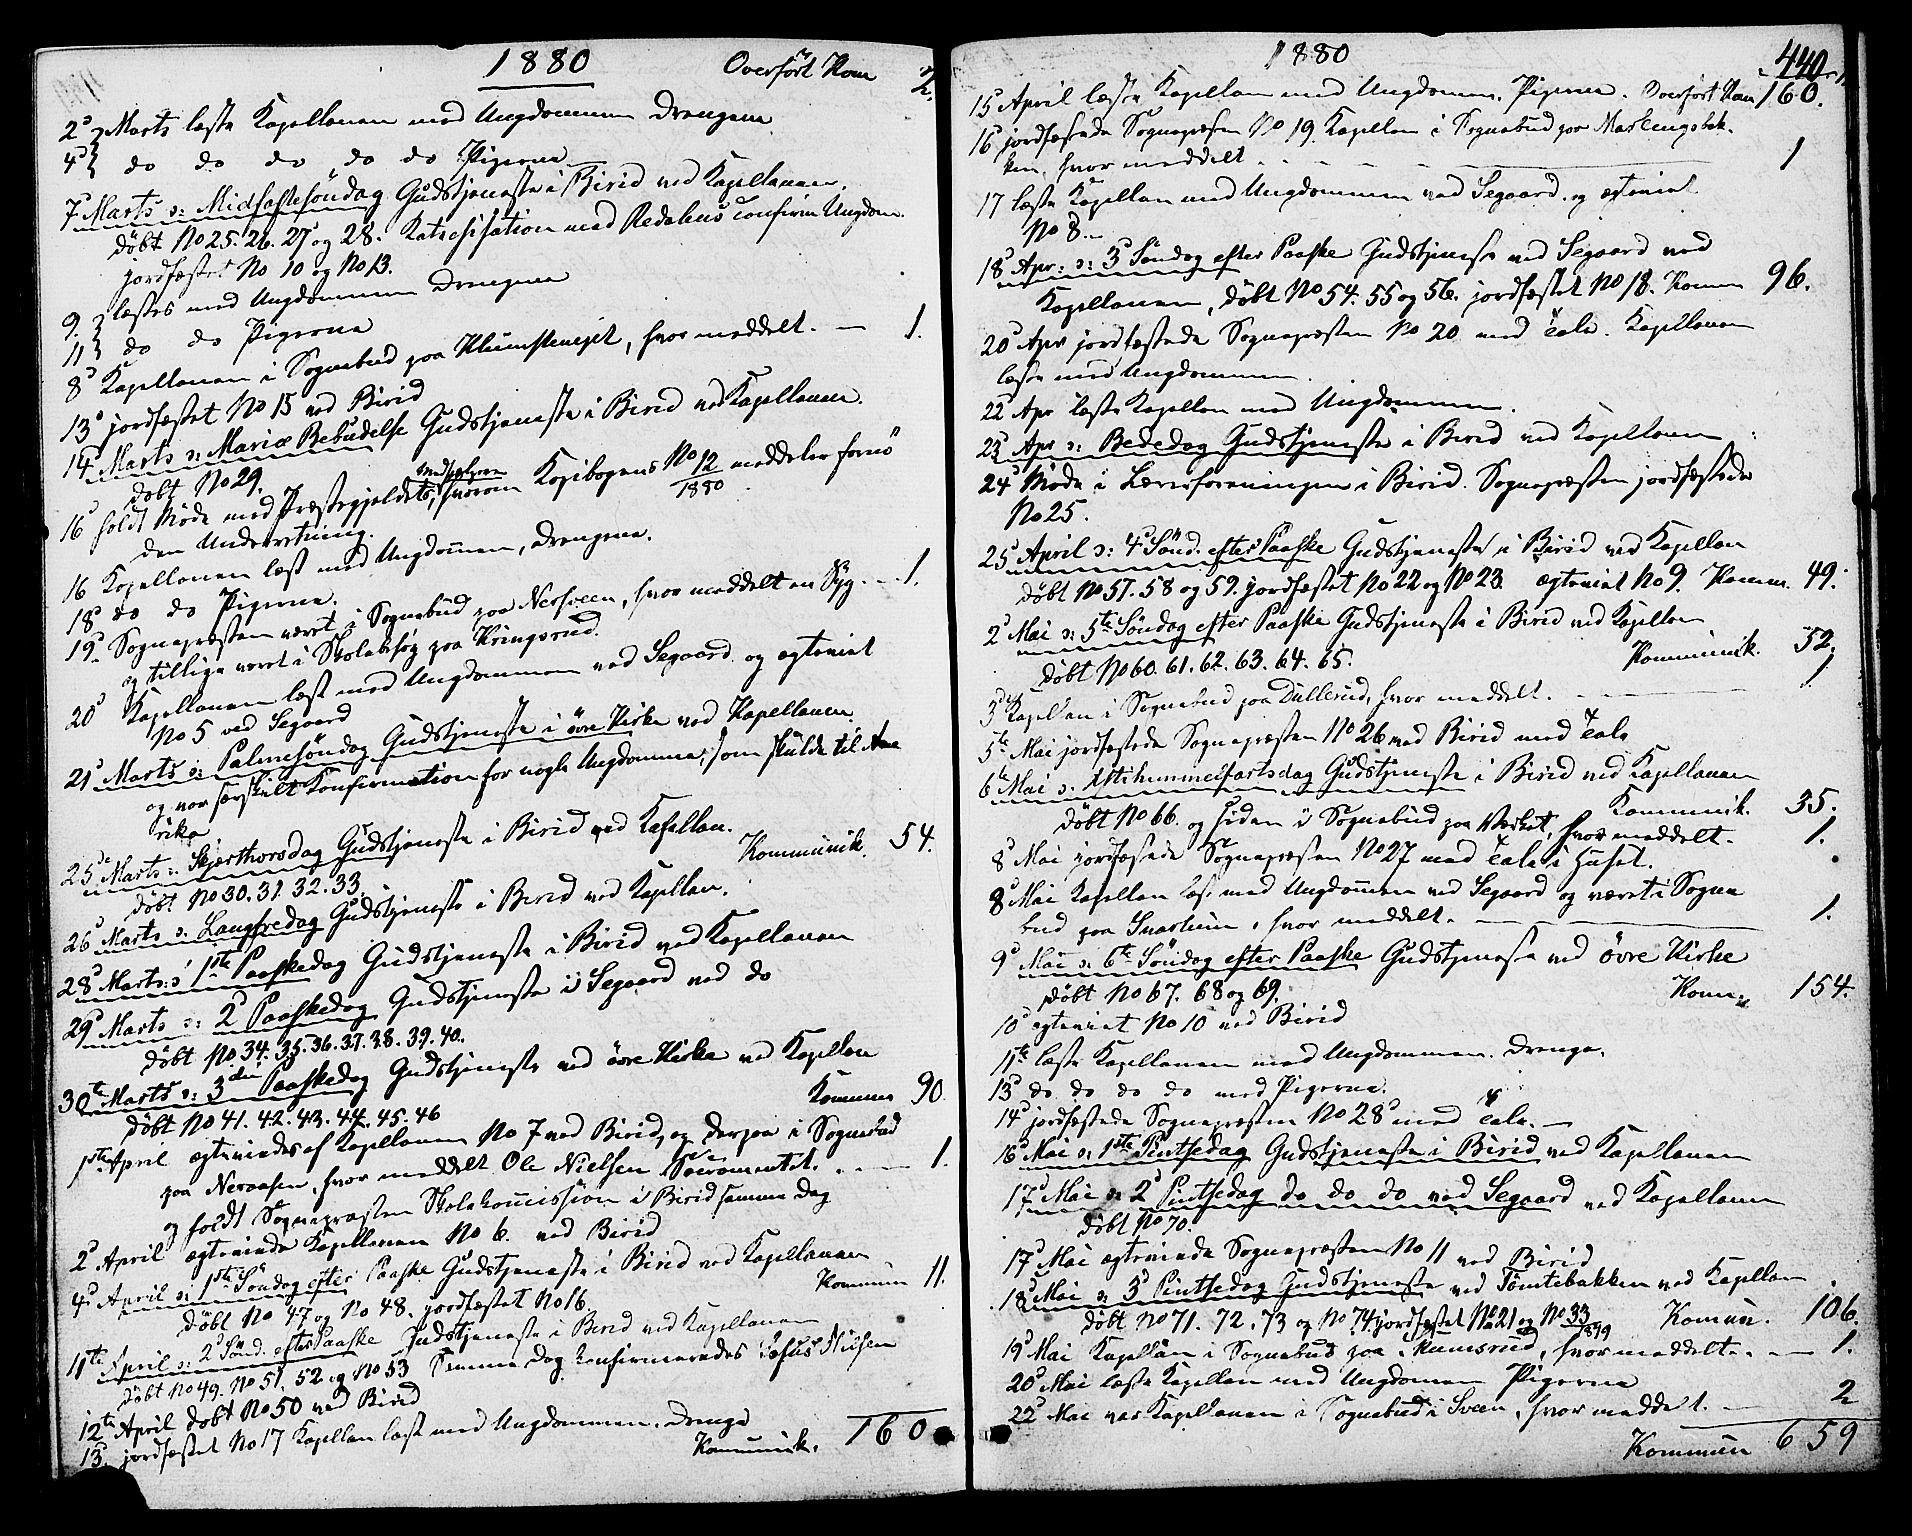 1880 Overført Kom 2.
2d } Marts læste Kapellanen med Ungdommen Drengene
4d } do do do do do Pigerne
7d Marts ɔ: Midfastesøndag Gudstjeneste i Birid ved Kapellanen.
døbt No 25. 26. 27 og 28. Katechisation med Redahus Confirm Ungdom.
jordfæstet No 10 og No 13.
9. } læstes med Ungdommen Drengene
11 } do do Pigerne
8d Kapellanen i Sognebud paa Klumsteneiet, hvor meddelt. — 1.
13d jordfæstet No 15 ved Birid
14 Marts ɔ: Mariæ Bebudelse Gudstjeneste i Birid ved Kapellanen.
døbt No 29.
16d holdt Møde med Præstegjeldets medhjelpere, hvorom Kopibogens No 12/1880 meddeler fornö
den Underretning.
16 Kapellanen læst med Ungdommen, Drengene.
18d do do Pigerne.
19d Sognepræsten været i Sognebud paa Nersveen, hvor meddelt en Syg. — 1.
og tillige været i Skolebesøg paa Kringsrud.
20d Kapellanen læst med Ungdommen ved Segaard og ægteviet
No 5 ved Segaard
21d Marts ɔ: Palmesöndag Gudstjeneste i övre Kirke ved Kapellanen.
og var særskilt Konfirmation for nogle Ungdomme, som skulde til Ame
rika
25de Marts ɔ: Skjærthorsdag Gudstjeneste i Birid ved Kapellan.
døbt No 30. 31. 32. 33. Kommunik. 54.
26d Marts ɔ: Langfredag Gudstjeneste i Birid ved Kapellan.
28d Marts ɔ: 1ste Paaskedag Gudstjeneste i Birid ved Kapellanen
29d Marts ɔ: 2d Paaskedag Gudstjeneste i Segaard ved do
døbt No 34. 35. 36. 37. 38. 39. 40.
30te Marts ɔ: 3die Paaskedag Gudstjeneste ved övre Kirke ved Kapellan
døbt No 41. 42. 43. 44. 45. 46 Kommun 90.
1ste April ægteviedes af Kapellanen No 7 ved Birid, og derpaa i Sognebud
paa Neraasen, hvor meddelt Ole Nielsen Sacramentet. — 1.
og holdt Sognepræsten Skolekommission i Birid samme Dag
2d April ægteviede Kapellanen No 6. ved Birid
4d April ɔ: 1ste Söndag efter Paaske Gudstjeneste i Birid ved Kapellanen
døbt No 47 og No 48. jordfæstet No 16 Kommun 11.
11te April ɔ: 2d Sönd. efter Paaske Gudstjeneste i Birid ved Kapellanen
døbt No 49. No 51. 52 og No 53 Samme Dag konfirmeredes Nilsen
12te April døbt No 50 ved Birid
13. jordfæstet No 17 Kapellan læst med Ungdommen. Drenge
Kommunik. 160
1880 440
15d April læste Kapellan med Ungdommen. Pigerne. Overført Kom 160.
16 jordfæstede Sognepræsten No 19. Kapellan i Sognebud paa Marlengsbak-
ken, hvor meddelt — 1
17 læste Kapellan med Ungdommen ved Segaard. og ægteviet
No 8.
18d Apr: ɔ: 3d Söndag efter Paaske Gudstjeneste ved Segaard ved
Kapellanen, døbt No 54. 55 og 56. jordfæstet No 18. Komm 96.
20d Apr jordfæstede Sognepræsten No 20 med Tale. Kapellanen
læste med Ungdommen.
22 Apr læste Kapellan med Ungdommen.
23d Apr ɔ: Bededag Gudstjeneste i Birid ved Kapellanen
24d Møde i Lærerforeningen i Birid. Sognepræsten jordfæstede
No 25.
25d April ɔ: 4d Sönd. efter Paaske Gudstjeneste i Birid ved Kapellan
døbt No 57. 58 og 59. jordfæstet No 22 og No 23 ægteviet No 9. Komm. 49.
2d Mai ɔ: 5te Söndag efter Paaske Gudstjeneste i Birid ved Kapellan
døbt No 60. 61. 62. 63. 64. 65. Kommunik. 52.
3d Kapellan i Sognebud paa Dullerud, hvor meddelt. — 1
5te Mai jordfæstede Sognepræsten No 26 ved Birid med Tale
6te Mai ɔ: Xstihimmelfartsdag Gudstjeneste i Birid ved Kapellanen
døbt No 66. og siden i Sognebud paa Værket, hvor meddelt. Kommunik. 35.
8d Mai jordfæstede Sognepræsten No 27 med Tale i Huset. 1.
8d Mai Kapellan læst med Ungdommen ved Segaard og været i Sogne
bud paa Svarteun. hvor meddelt. — 1.
9d Mai ɔ: 6te Söndag efter Paaske Gudstjeneste ved övre Kirke
døbt No 67. 68 og 69. Kom: 154.
10d ægteviet No 10 ved Birid
11te læste Kapellanen med Ungdommen. Drenge.
13d do do do do med Pigerne.
14d jordfæstede Sognepræsten No 28 med Tale. —
16d Mai ɔ: 1ste Pintsedag Gudstjeneste i Birid ved Kapellanen
17d Mai ɔ: 2d Pintsedag do do do ved Segaard ved Kapellanen
døbt No 70.
17d Mai ægteviede Sognepræsten No 11 ved Birid
18d Mai ɔ: 3d Pintsedag Gudstjeneste ved Tömtebakken ved Kapellan
døbt No 71. 72. 73 og No 74. jordfæstet No 21 og No 33/1879 Kommun. 106.
19d Mai Kapellan i Sognebud paa Rumsrud, hvor meddelt. — 1.
20d Mai læste Kapellan med Ungdommen Pigerne
22d Mai var Kapellanen i Sognebud i Sveen, hvor meddelt. — 2
Kommun 659